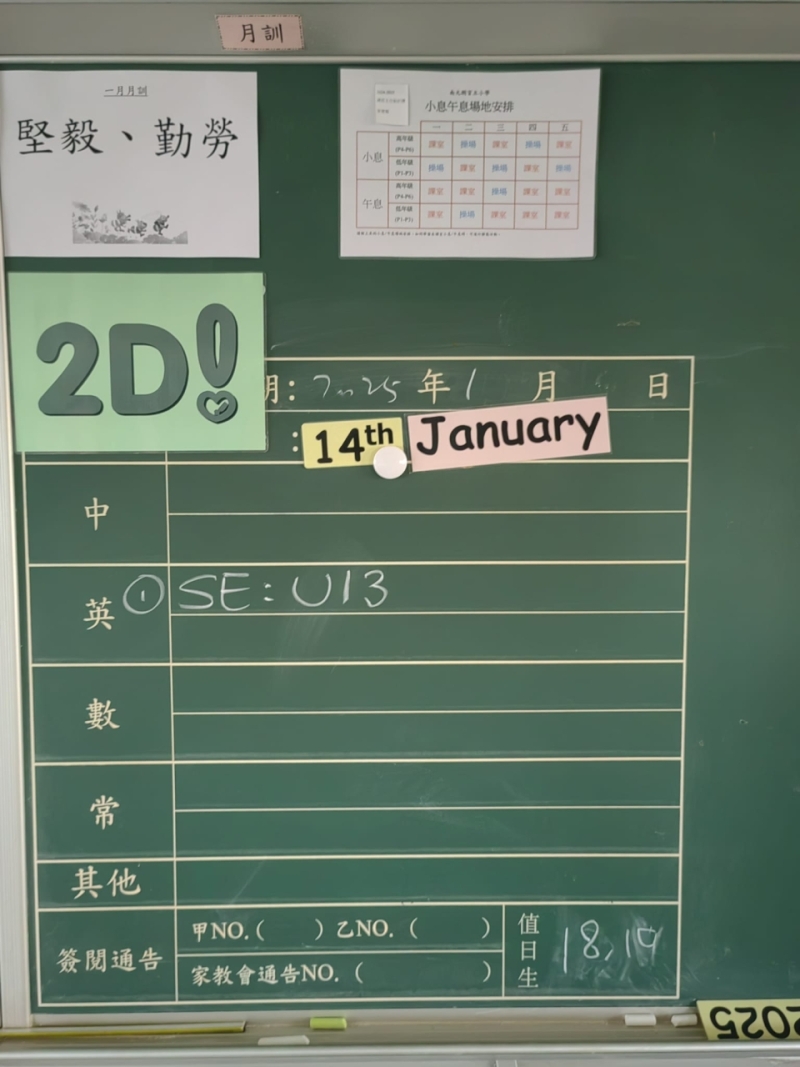 月訓
一月月訓
堅毅、勤勞
小息午息場地安排
一 二 三 四 五
小息 高年級 (P4-P6) 課室 操場 課室 操場 課室
低年級 (P1-P3) 操場 課室 操場 課室 操場
午息 高年級 (P4-P6) 課室 課室 操場 課室 課室
低年級 (P1-P3) 課室 操場 課室 課室 課室
2D!
期: 2025 年 1 月 日
: 14th January
中
英 ① SE: U13
數
常
其他
簽閱通告 甲NO.( ) 乙NO.( )
家教會通告NO.( )
值日生 18, 19
2025